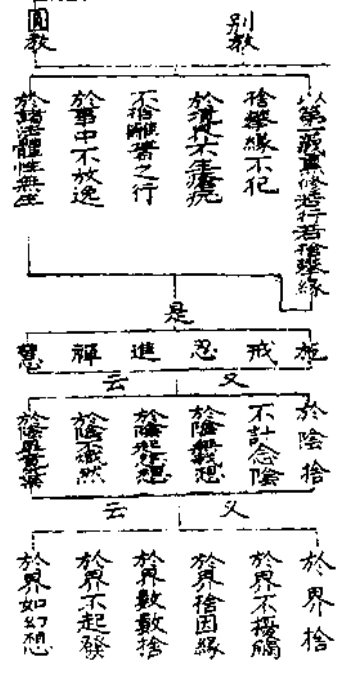 別教
圓教
以第一義真修若行若捨攀緣
捨攀緣不犯
不捨離諸之行
於事中不放逸
於諸法體性無生
是
施
戒
忍
進
禪
慧
又云
於陰捨
不計念陰
於陰無我想
於陰起怨想
於陰不熾然
於陰畢竟棄
又云
於界捨
於界不擾觸
於界捨因緣
於界數數捨
於界不起發
於界如幻想